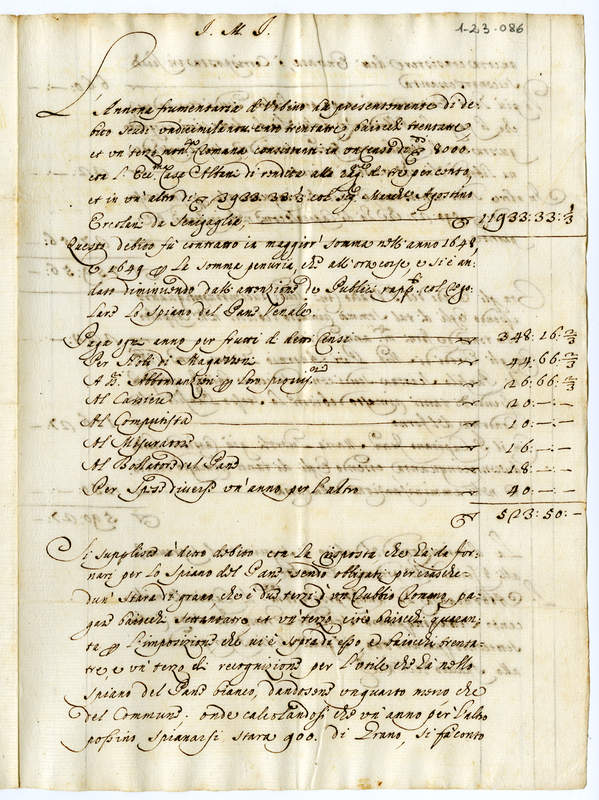 I. M. I.
1-23-086
L'Annona frumentaria d'Urbino hà presentemente di de-
bito scudi undicimilanovecento trentatre, baiocchi trentatre,
et un terzo mon.ta Romana consistenti in un censo di 8000.
con l'Ecc.ma Casa Albani di rendita alla rag.ne di tre per cento,
et in un altro di 3933:33:1/3 col Sig. March.e Agostino
Ercolani da Senigaglia 11933:33:1/3
Questo debito fù contratto in maggior somma nell'anno 1648,
e 1649 per la somma penuria, che all'ora corse, e si è an-
dato diminuendo dall'attenzione de Publici rapp.ti col rego-
lare lo spiano del Pane Venale.
Paga ogni anno per frutti di detti Censi 348:16:2/3
Per Noli di Magazzeni 44:66:2/3
A S.ri Abbondanzieri per loro provis.ne 26:66:2/3
Al Cassiere 20:—:—
Al Computista 10:—:—
Al Misuratore 16:—:—
Al Bollatore del Pane 18:—:—
Per Spese diverse un'anno per l'altro 40:—:—
523:50:—
Si supplisce à detto debito con la risposta che hà da for-
nari per lo spiano del Pane sendo obligati per ciasche-
dun Stara di grano che è due terzi d'un Rubbio Romano, pa-
gare baiocchi settantatre et un terzo, cioè baiocchi quaran-
ta per l'imposizione che vi è sopra di esso e baiocchi trenta-
tre, e un terzo di recognizione per l'utile che hà nello
spiano del Pane bianco, dandosene un quarto meno che
del Commune. onde calcolandosi che un'anno per l'altro
possino spianarsi stara 900. di Grano, si fa conto